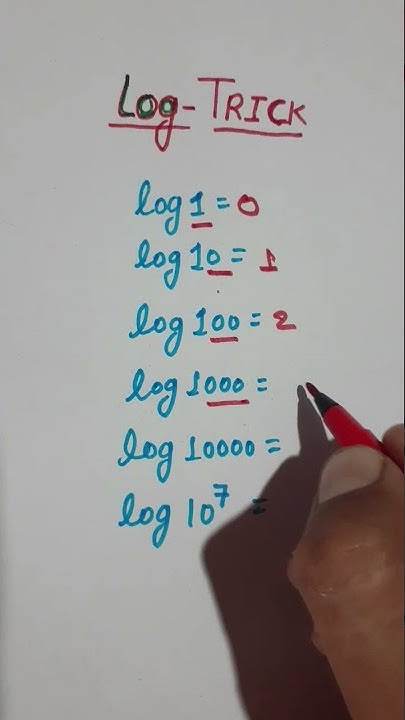 Log-TRICK
log 1 = 0
log 10 = 1
log 100 = 2
log 1000 =
log 10000 =
log 10⁷ =